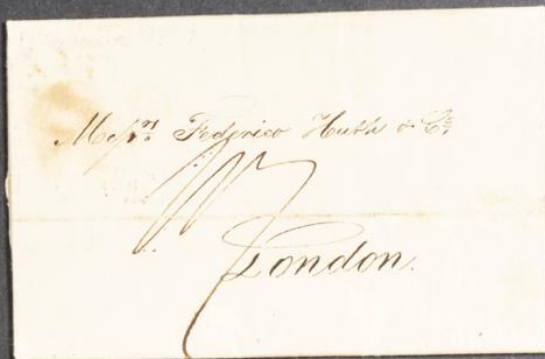 Messrs. Federico Huth & Co.
London.